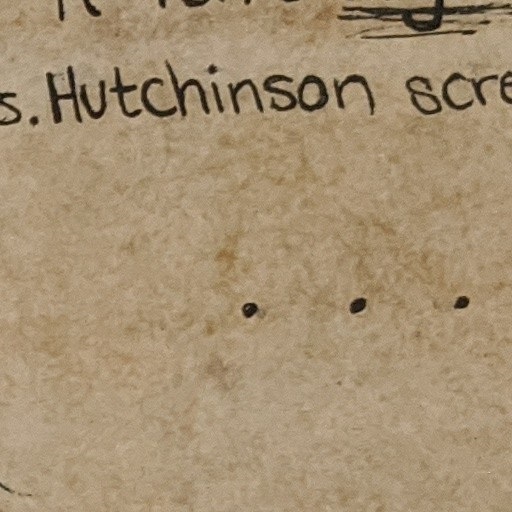 s. Hutchinson scre
. . .